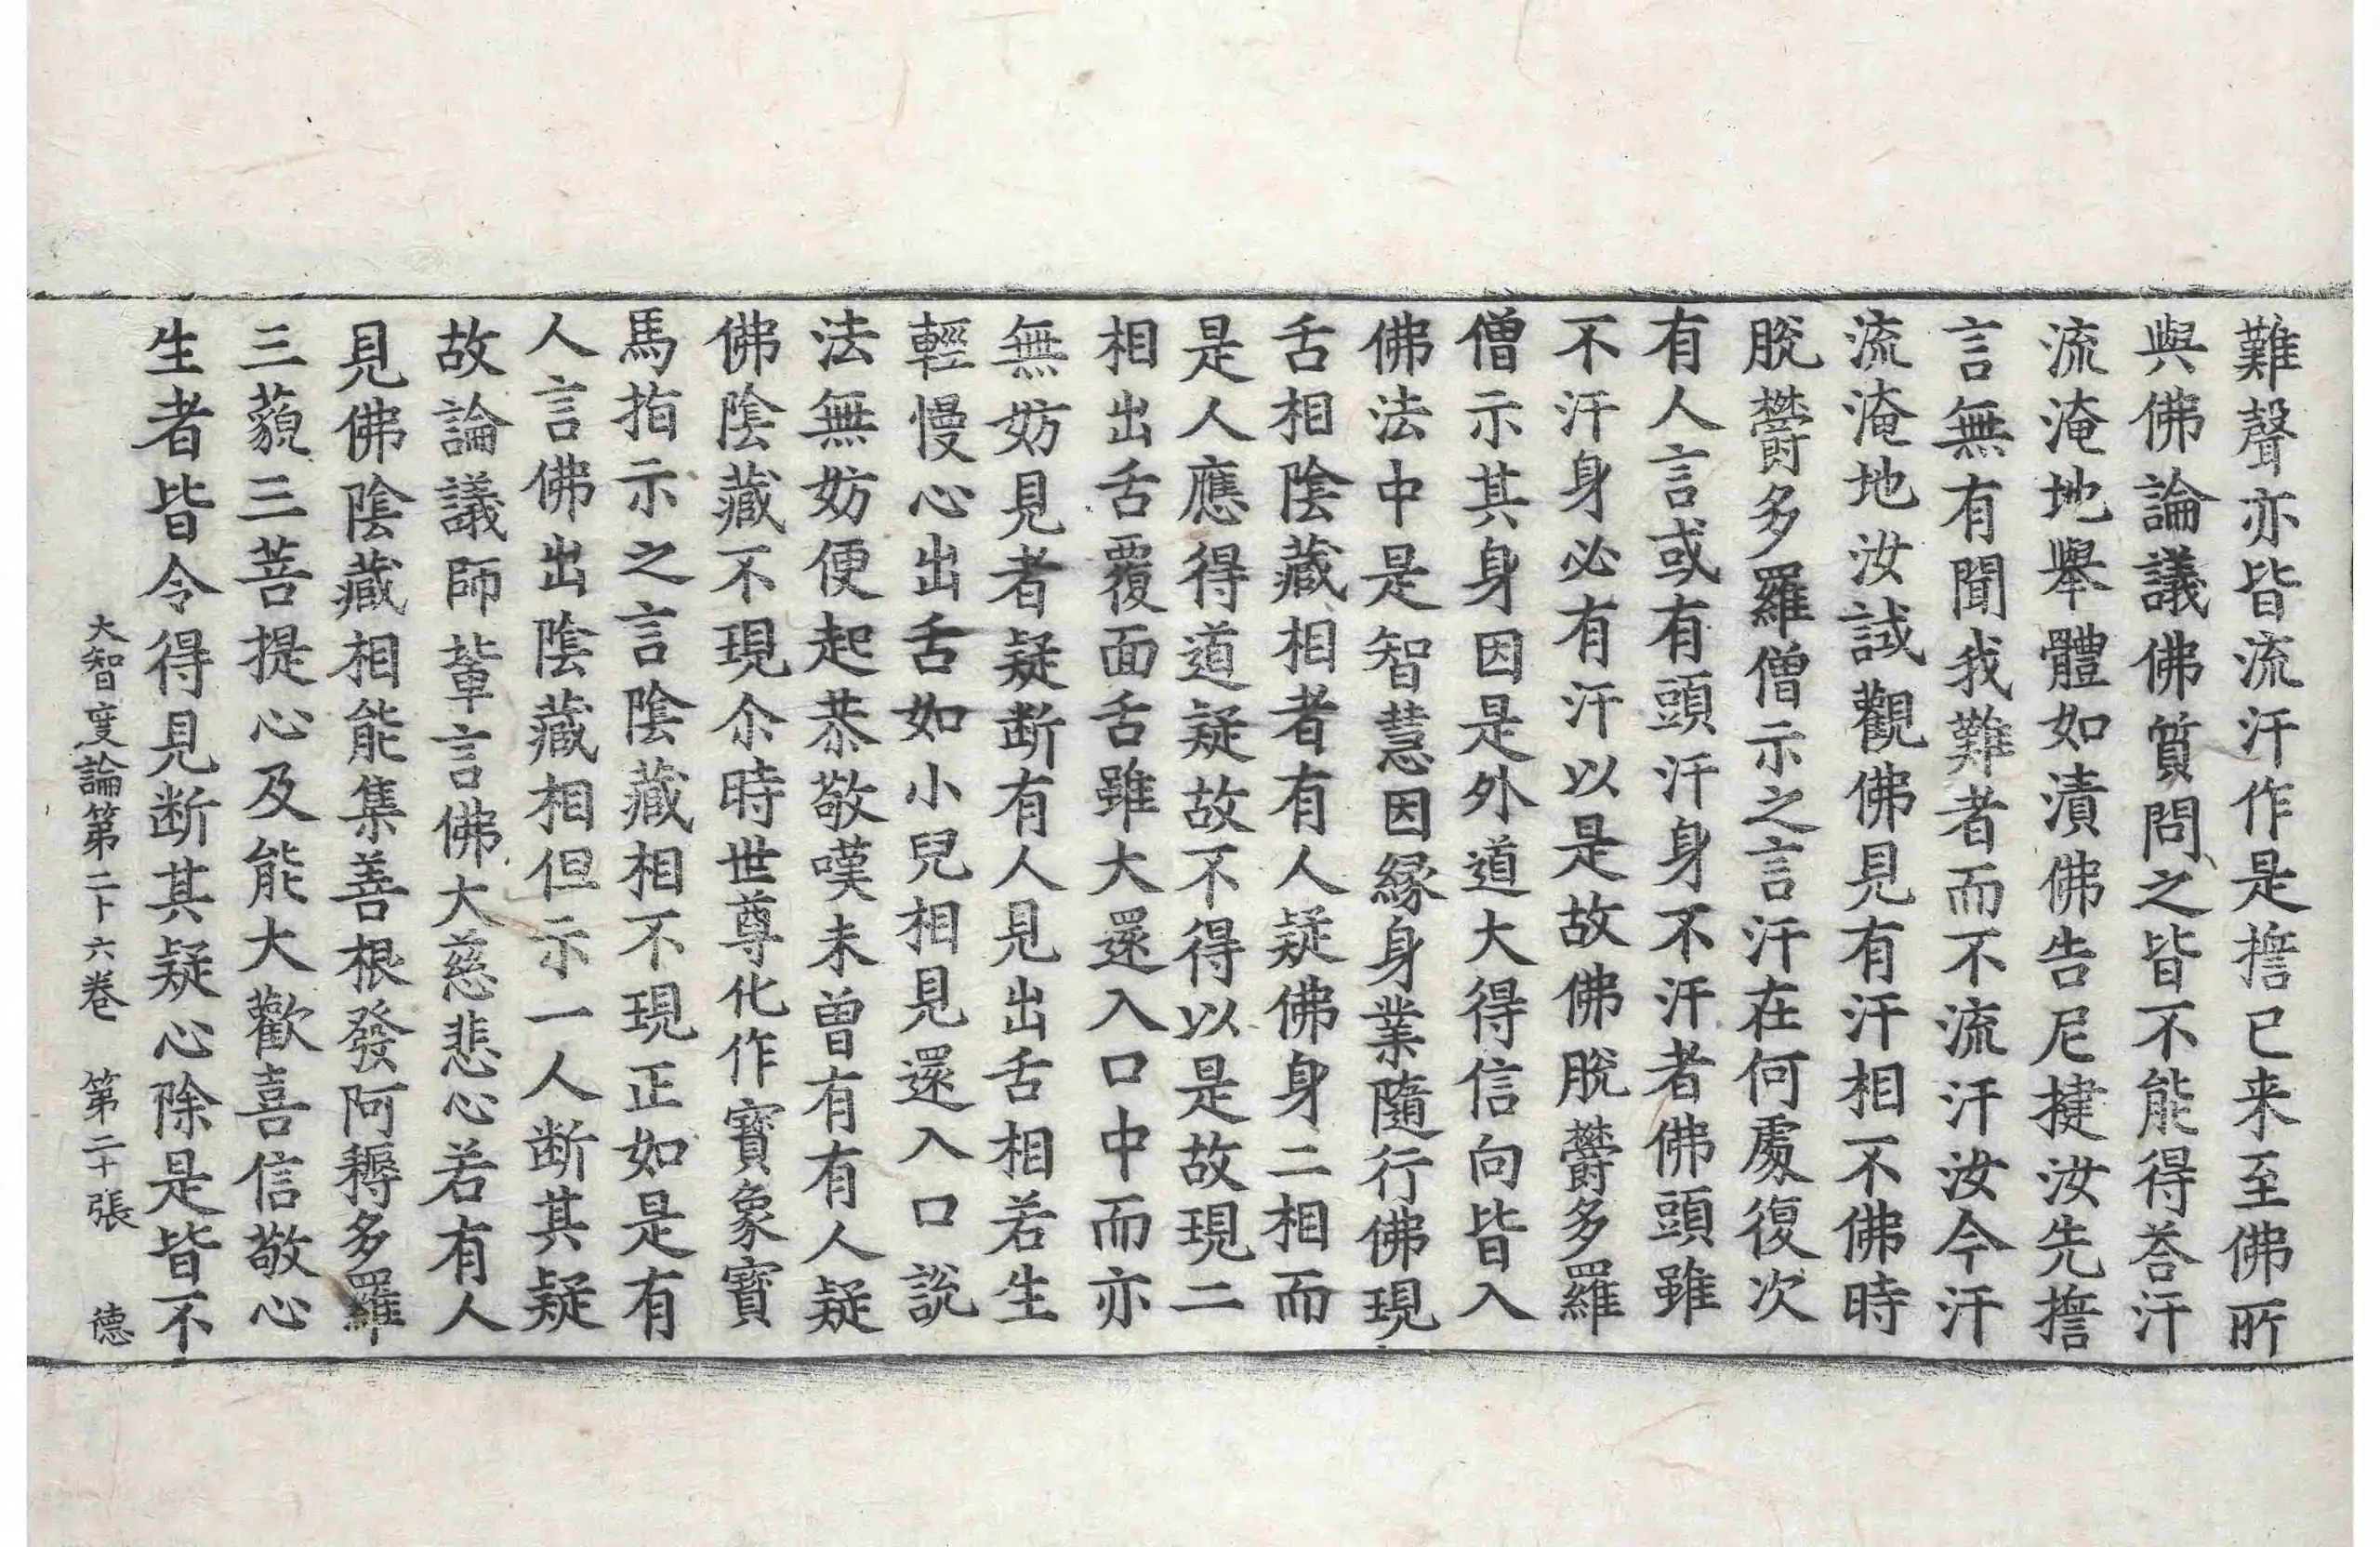 難聲亦皆流汗作是擔已来至佛所
與佛論議佛質問之皆不能得荅汗
流淹地舉體如漬佛告尼揵汝先擔
言無有聞我難者而不流汗汝今汗
流淹地汝試觀佛見有汗相不佛時
脫欝多羅僧示之言汗在何處復次
有人言或有頭汗身不汗者佛頭雖
不汗身必有汗以是故佛脫欝多羅
僧示其身因是外道大得信向皆入
佛法中是智慧因緣身業隨行佛現
舌相陰藏相者有人疑佛身二相而
是人應得道疑故不得以是故現二
相出舌覆面舌雖大還入口中而亦
無妨見者疑断有人見出舌相若生
輕慢心出舌如小兒相見還入口說
法無妨便起恭敬嘆未曾有有人疑
佛陰藏不現尒時世尊化作寶象寶
馬指示之言陰藏相不現正如是有
人言佛出陰藏相但示一人断其疑
故論議師軰言佛大慈悲心若有人
見佛陰藏相能集善根發阿耨多羅
三藐三菩提心及能大歡喜信敬心
生者皆令得見断其疑心除是皆不
大智度論第二十六卷 第二十張 德